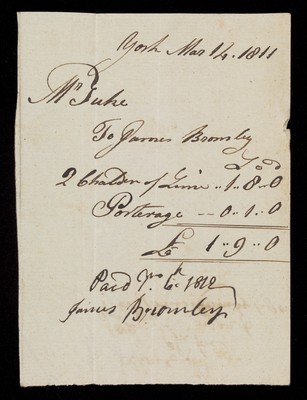 York Mar 14. 1811
Mr Tuke
To James Bromley
£ s d
2 Chalder of Lime .. 1 .. 8 .. 0
Porterage -- 0 .. 1 .. 0
£ 1 .. 9 .. 0
Paid 1812
James Bromley